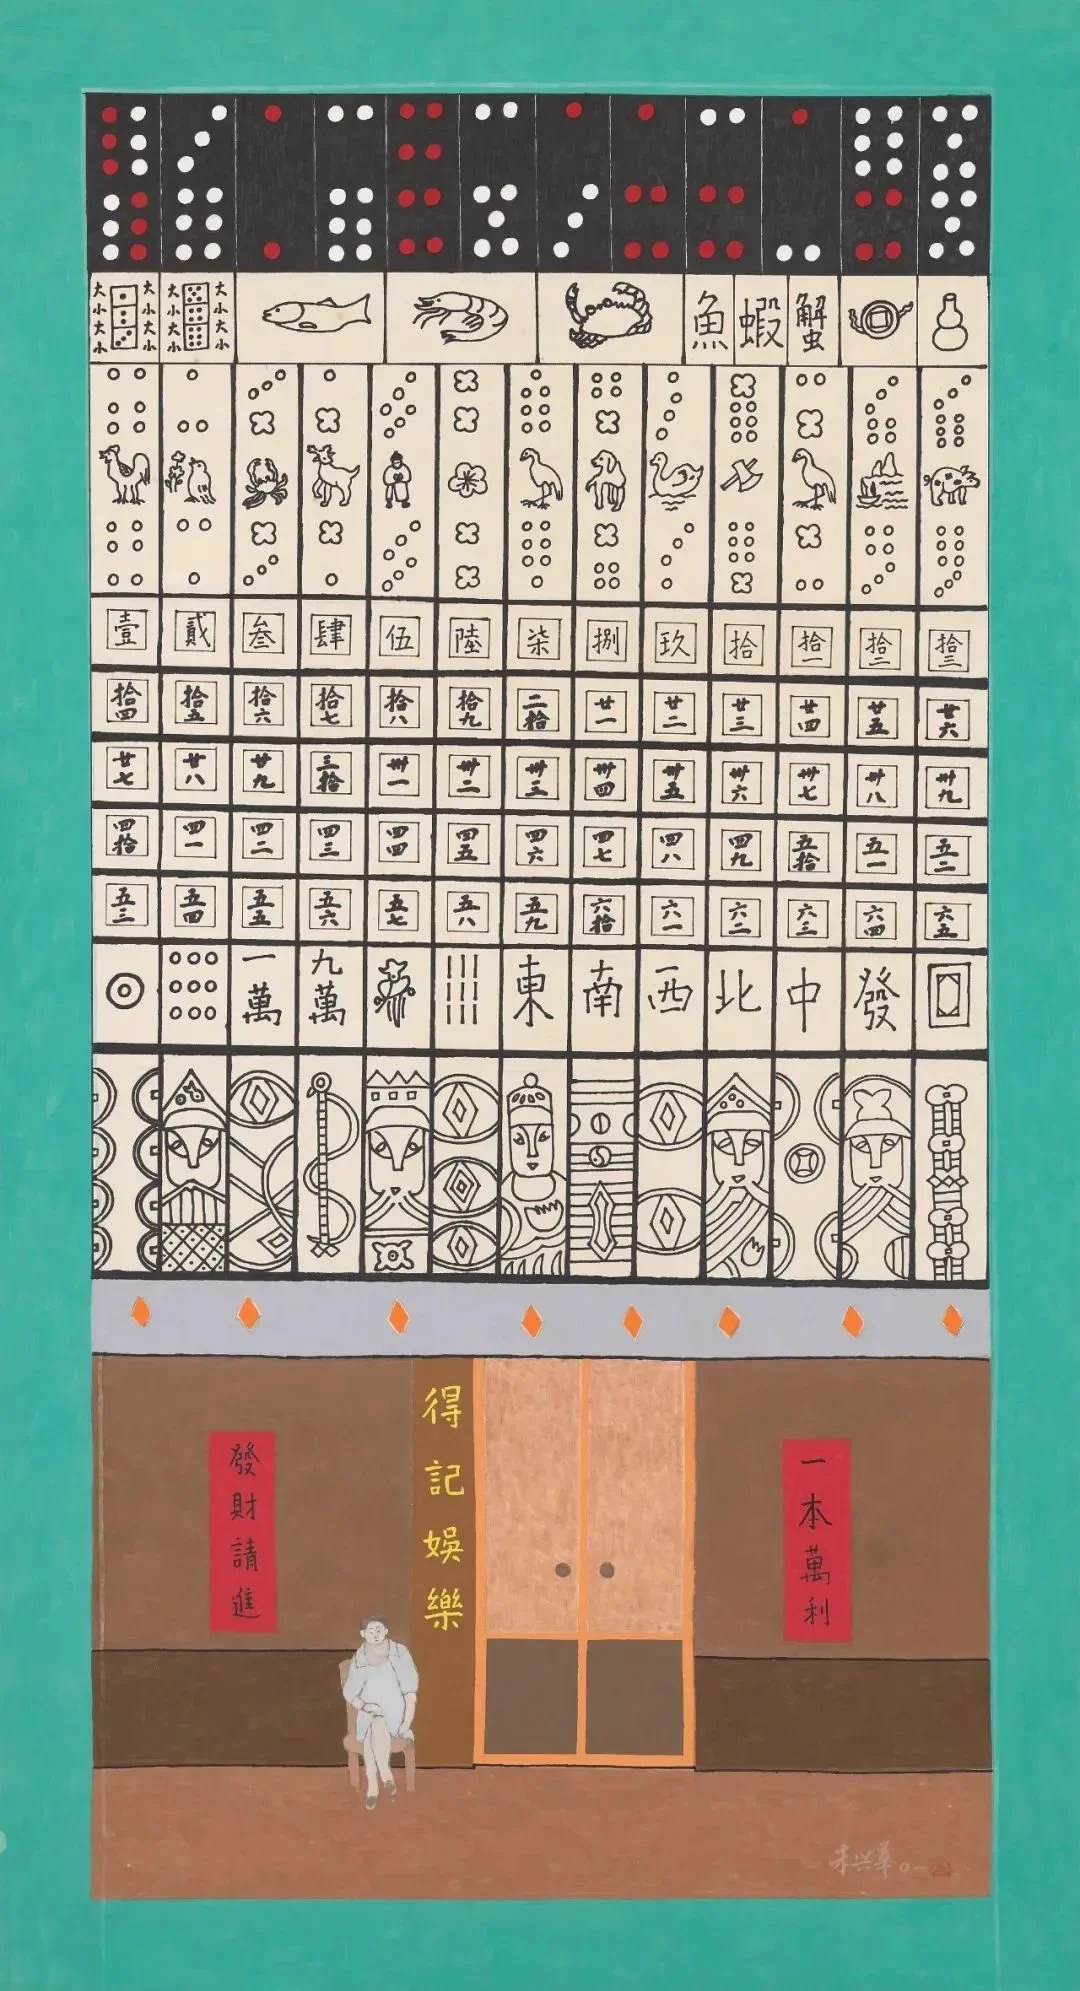 大小大小 大小大小 大小大小 大小大小 魚 蝦 蟹
壹 貳 叁 肆 伍 陸 柒 捌 玖 拾 拾一 拾二 拾三
拾四 拾五 拾六 拾七 拾八 拾九 二拾 廿一 廿二 廿三 廿四 廿五 廿六
廿七 廿八 廿九 三拾 卅一 卅二 卅三 卅四 卅五 卅六 卅七 卅八 卅九
四拾 四一 四二 四三 四四 四五 四六 四七 四八 四九 五拾 五一 五二
五三 五四 五五 五六 五七 五八 五九 六拾 六一 六二 六三 六四 六五
一萬 九萬 東 南 西 北 中 發
發財請進
得記娛樂
一本萬利
朱兴華 〇一